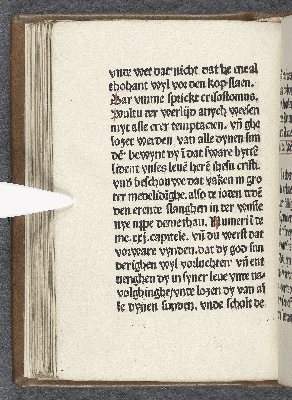 vnte wet dat nicht dat he me al
thohant wyl vor den kop slaen.
Dar vmme spricket crisostomus.
Wultu ter werlijd anych wesen
myt alle erer temptacien. vñ ghe
lozet werden van alle dynen sun
dẽ. bewynt dy ĩ dat sware bytte
lident vnses leuẽ herẽ ihesu cristi.
vnd beschouwe dat vaken in gro
ter medelidighe. also te ioden tdẽ
den erente slanghen in ter wuste
nye vppe demethau. Numeri ĩ te
me. xxj. capitele. vñ du werst dat
vorware vynden. dat dy god sun
derighen wyl vorluchten vñ ent
uenghen dy in syner leue vnte na
volghinghe/vnte lozen dy van al
le dynen sunden. vnde scholt de